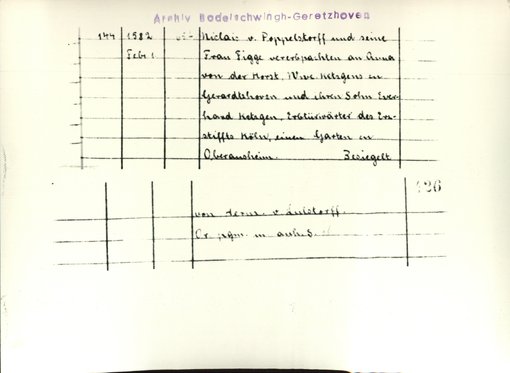 Archiv Bodelschwingh-Geretzhoven
144 1582 Niclais v. Poppelstorff und seine
Febr 1. Frau Figge vererbpachten an Anna
von der Horst, Wwe Ketzgens in
Gerardtshoven und ihren Sohn Ever-
hard Ketzgen, Erbtürwärter des Erz-
stiffts Köln, einen Garten in
Oberaussheim. Besiegelt
126
von Herm. v. Lülstorff
Or. pgm. m anh. S.